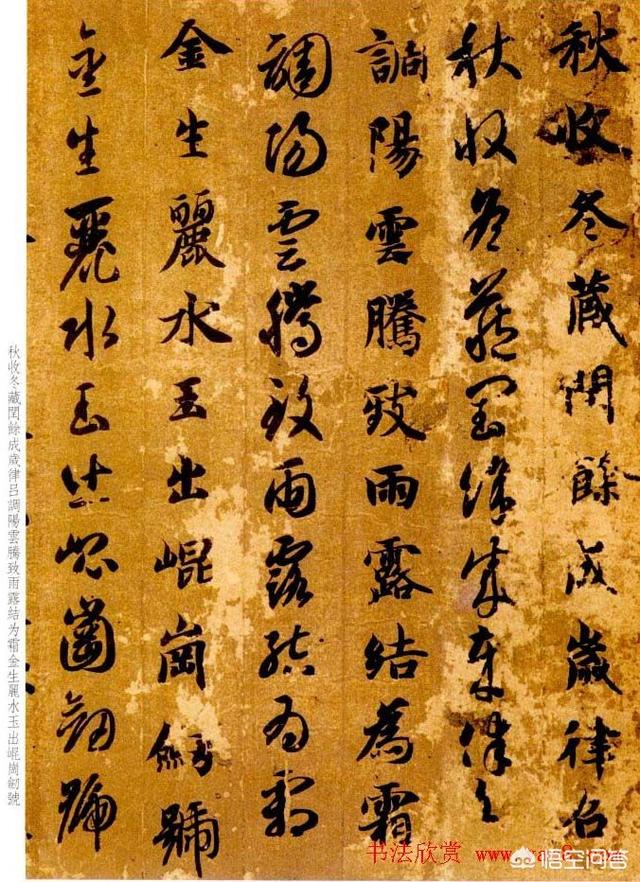 秋收冬藏閏餘成歲律呂
秋收冬藏閏餘成歲律呂
調陽雲騰致雨露結為霜
調陽雲騰致雨露結為霜
金生麗水玉出崐崗劒號
金生麗水玉出崐崗劒號
秋收冬藏閏餘成歲律呂調陽雲騰致雨露结为霜金生麗水玉出崐崗劒號
书法欣赏
悟空问答